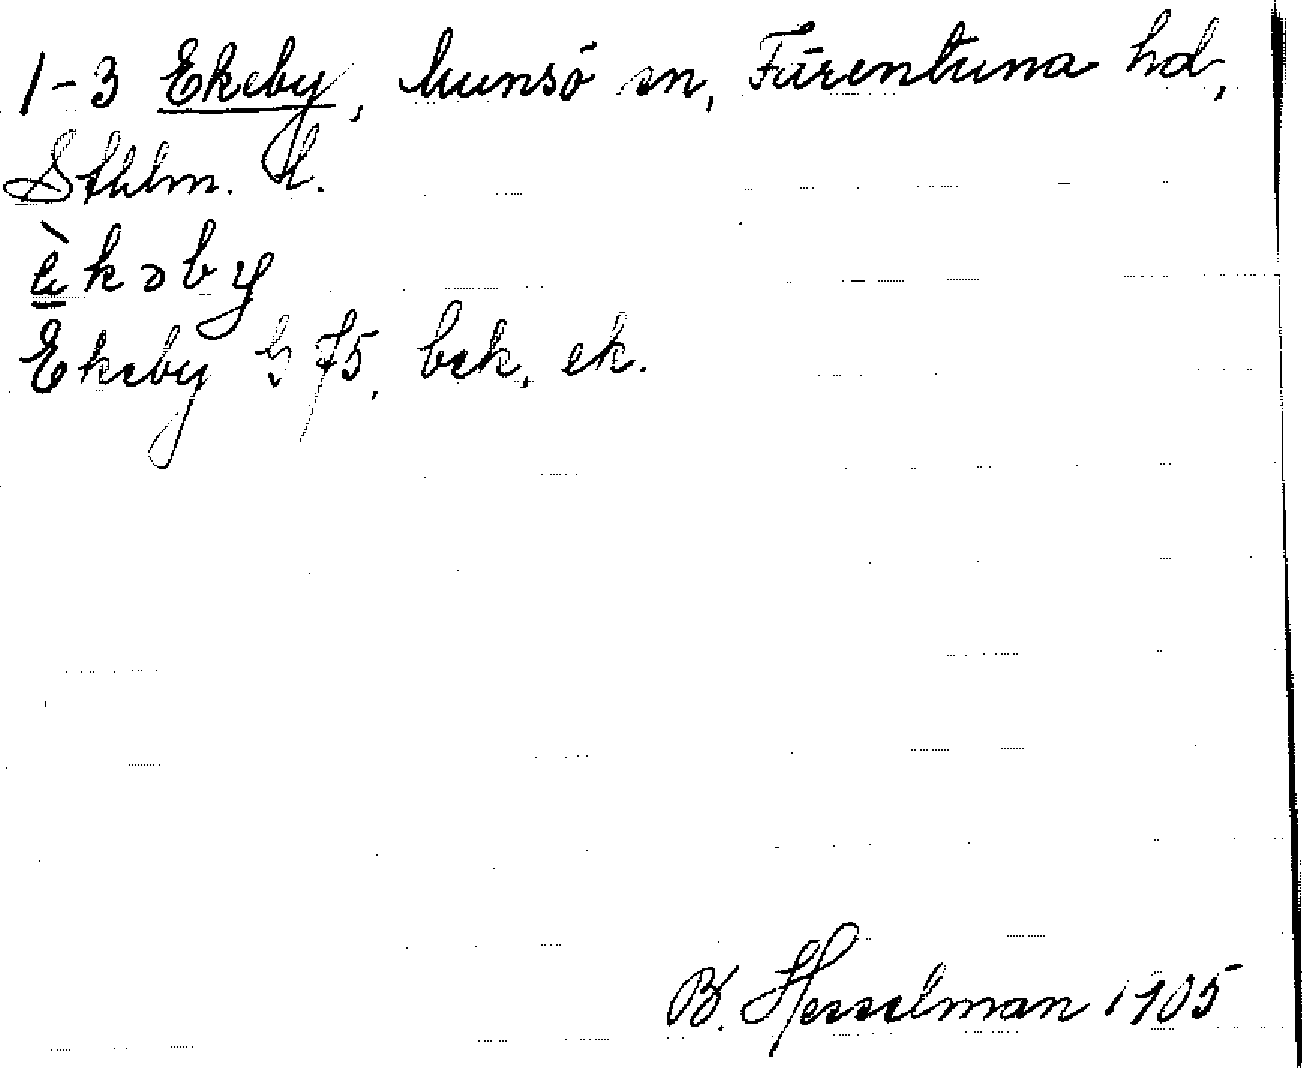 1-3 Ekeby, Munsö sn, Färentuna hd,
Sthlm. l.
èkəby
Ekeby G 75, bek. ek.
B. Hesselman 1905